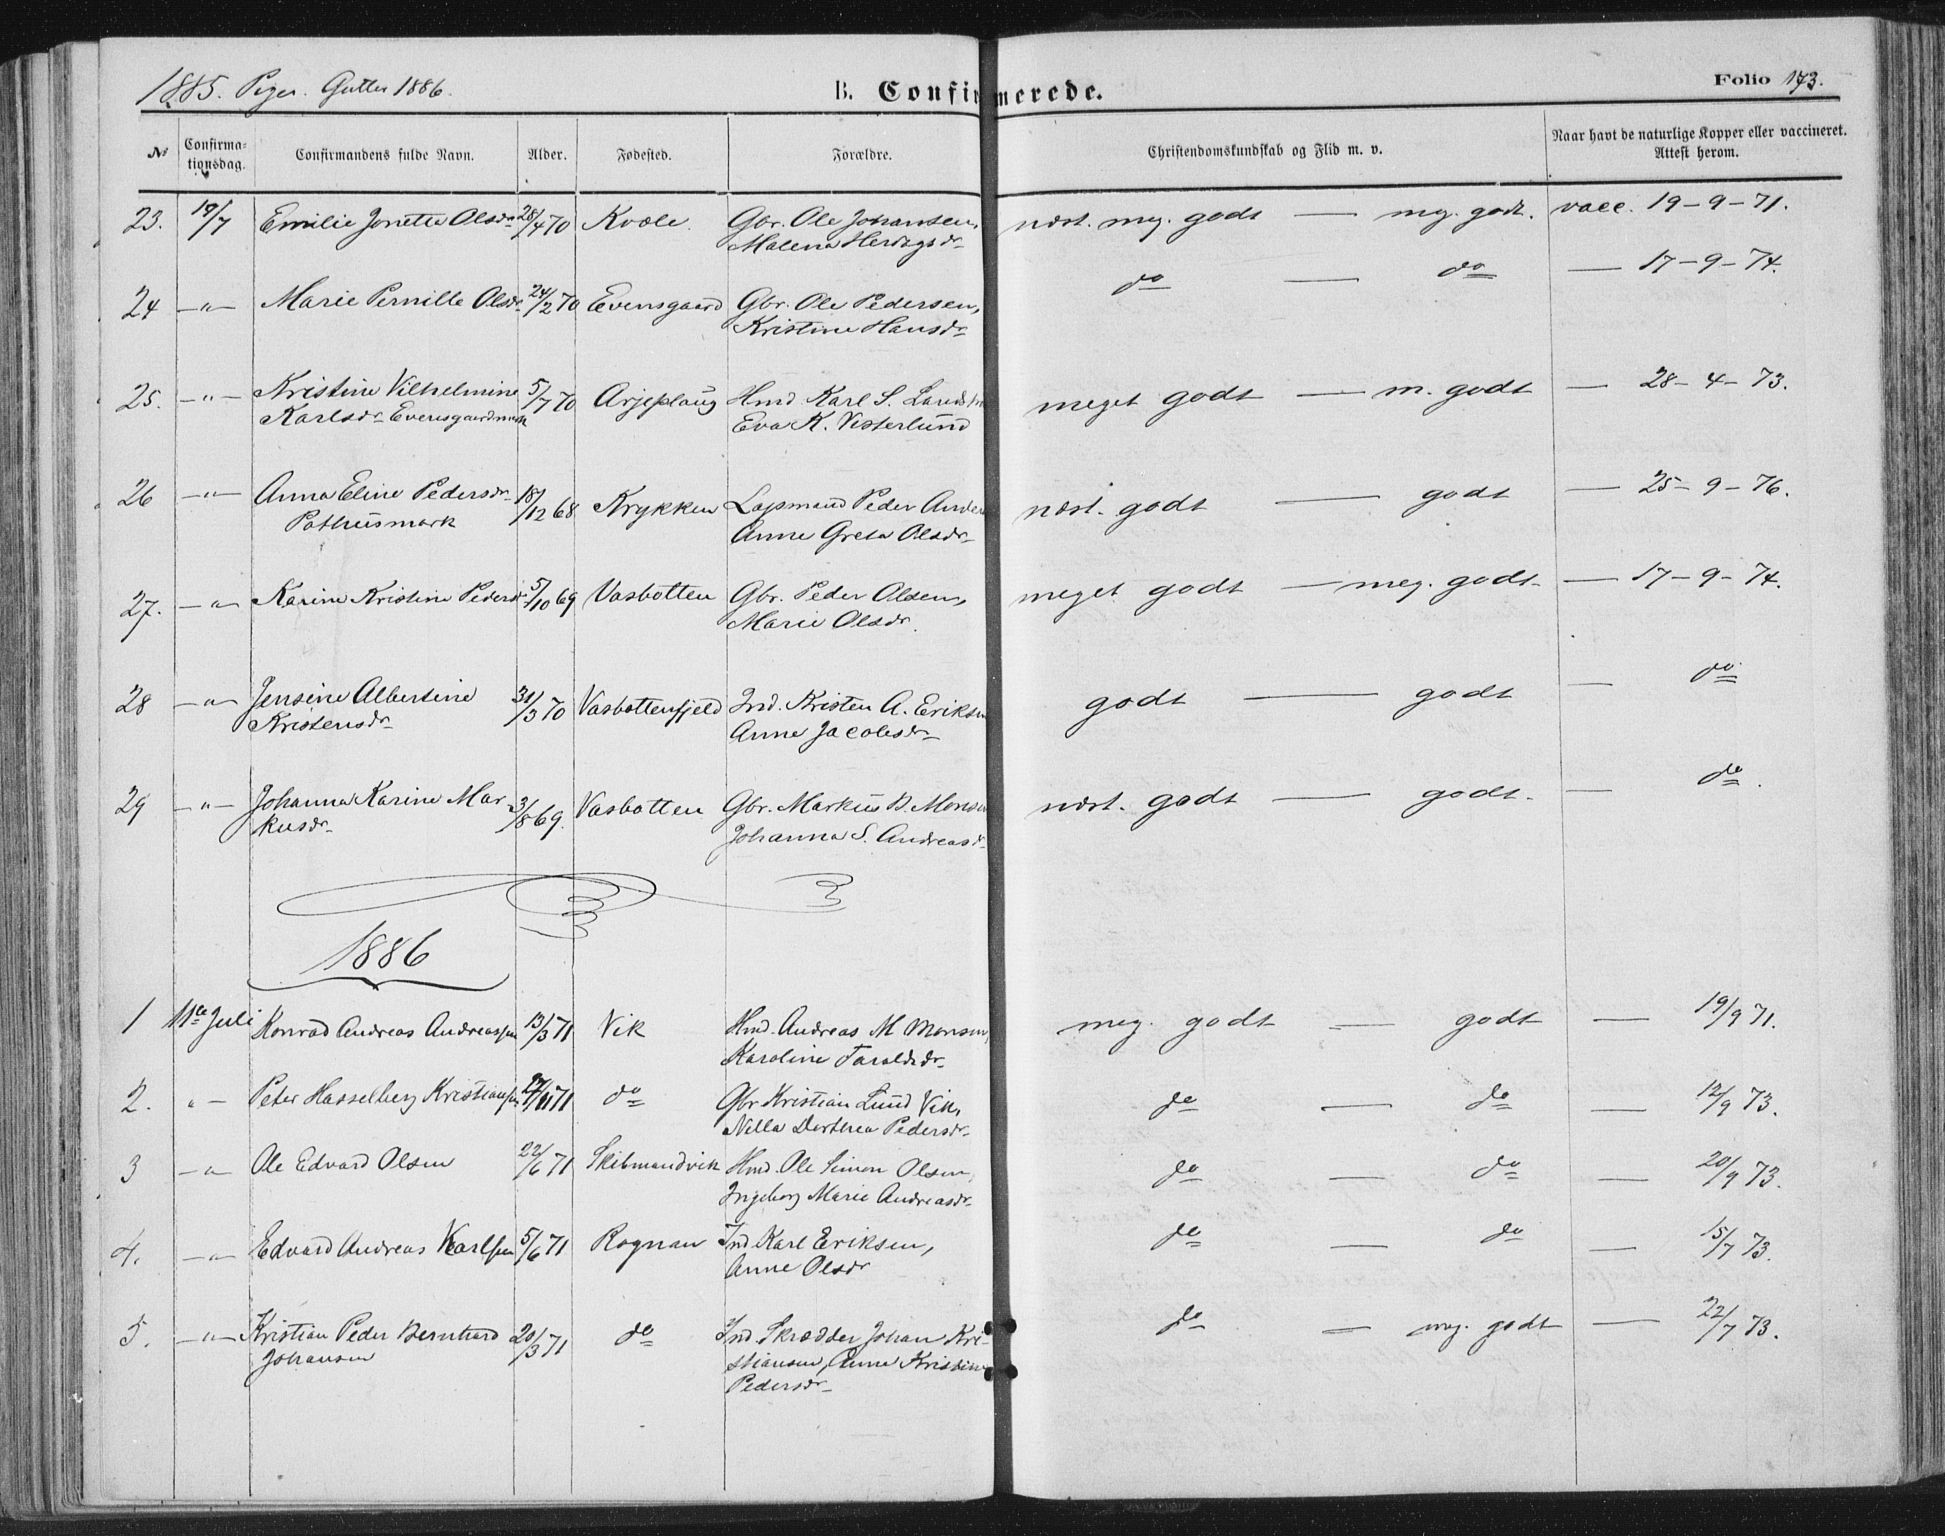 1885. Piger. Gutter 1886.
B. Confirmerede.
Folio 173.
No
Confirma-
tionsdag.
Confirmandens fulde Navn.
Alder.
Fødested.
Forældre.
Christendomskundskab og Flid m. v.
Naar havt de naturlige Kopper eller vaccineret.
Attest herom.
23. 19/7 Emilie Jonette Olsdr 28/4 70 Kvæle. Gbr. Ole Johansen, næst. meg. godt — meg. godt. vacc. 19-9-71.
Malena Herdagsdr
24 —"— Marie Pernille Olsdr 24/2 70 Evensgaard Gbr. Ole Pedersen, do — do — 17-9-74.
Kristine Hansdr
25. —"— Kristine Vilhelmine 5/7 70 Arjeplaug Hmd Karl S. meget godt — m. godt — 28-4-73.
Karlsdr Evensgaardmark Eva K. Vesterlund
26 —"— Anna Eline Pedersdr 18/12 68 Krykken Lapmand Peder næst. godt — godt — 25-9-76.
Pothusmark Anne Greta Olsdr
27. —"— Karine Kristine Pedersdr 5/10 69 Vasbotten Gbr. Peder Olsen, meget godt — meg. godt — 17-9-74.
Marie Olsdr.
28 —"— Jensine Albertine 31/3 70 Vasbottenfjeld Ind. Kristen A. Eriksen godt — godt — do
Kristensdr Anne Jacobsdr
29 —"— Johanna Karine Mar- 3/8 69. Vasbotten Gbr. Markus B. Monsen næst. godt — godt. — do.
kusdr Johanna S. Andreasdr
1886
1 11te Juli Konrad Andreas Andreassen 13/3 71 Vik Hmd. Andreas M Monsen, meg. godt — godt — 19/9 71.
Karoline Taraldsdr
2. "— Peter Hasselberg Kristiansen /11 71 do Gbr Kristian Lund Vik, do — do — 12/9 73.
Nella Dorthea Pedersdr
3 —"— Ole Edvard Olsen 22/6 71 Skibmandvik Hmd. Ole Simon Olsen, do — do — 20/9 73.
Ingeborg Marie Andreasdr
4. —"— Edvard Andreas Karlsen 5/6 71 Rognan Ind Karl Eriksen, do — do — 15/7 73.
Anne Olsdr
5. —"— Kristian Peder Bernhard 20/3 71 do Ind. Skrædder Johan Kri- do — meg. godt — 22/7 73.
Johansen stiansen, Anne Kristine
Pedersdr